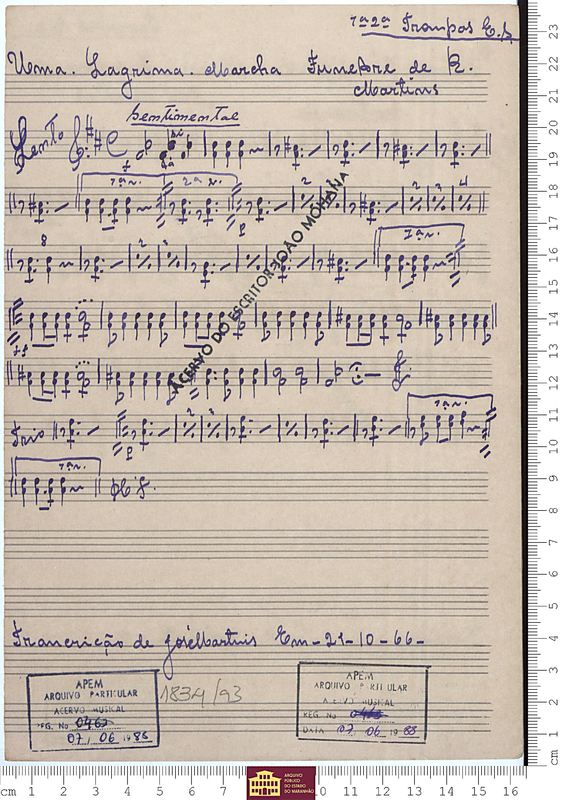 1ª 2ª Trompas E.b
Uma. Lagrima. Marcha Funebre de R.
Martins
Sentimental
Lento
1ª v. 2ª v.
2 3 2 3 4
8 2 3 2 1ª v.
ff
Trio 2 3 2 1ª v.
1ª v. D.C.
ACERVO DO ESCRITOR JOÃO MOHANA
Trancrição de José Martins Em-21-10-66-
APEM
ARQUIVO PARTICULAR
ACERVO MUSICAL
REG. No 0463
07, 06 1988
1834/93
APEM
ARQUIVO PARTICULAR
ACERVO MUSICAL
REG. No 0463
DATA 07 06 1988
ARQUIVO
PÚBLICO
DO ESTADO
DO MARANHÃO
cm 1 2 3 4 5 6 7 0 11 12 13 14 15 16
23
22
21
20
19
18
17
16
15
14
13
12
11
10
9
8
7
6
5
4
3
2
1
cm